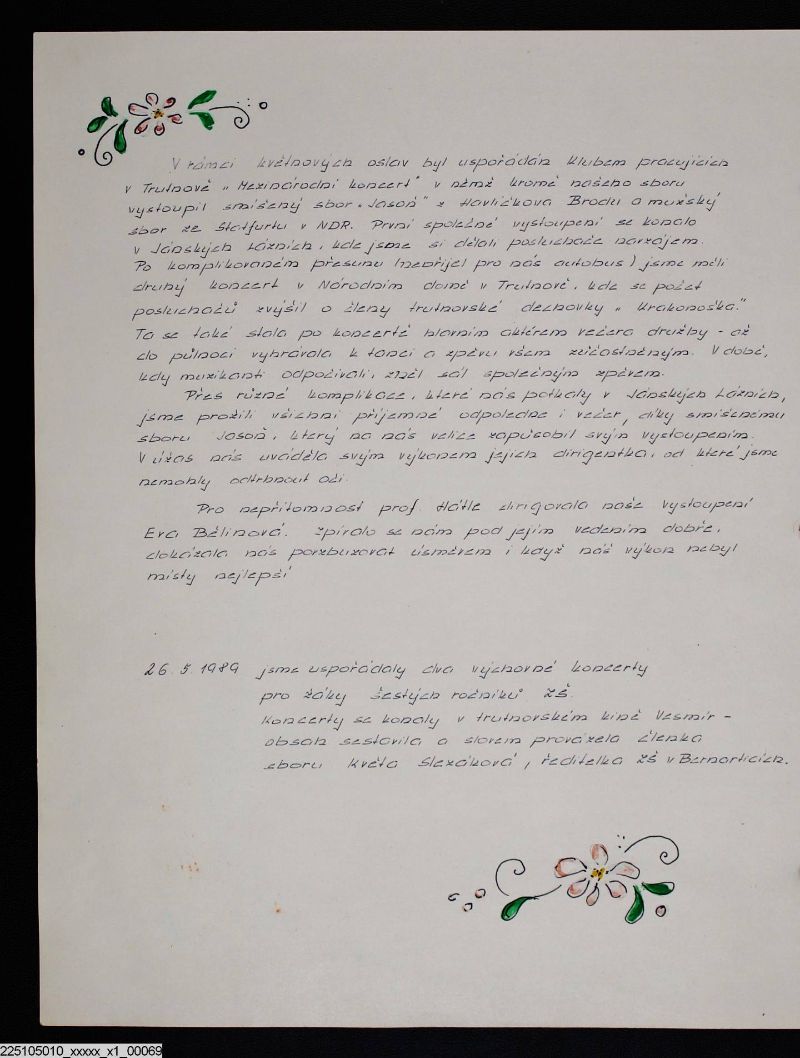 V rámci květnových oslav byl uspořádán Klubem pracujících
v Trutnově „Mezinárodní koncert" v němž kromě našeho sboru
vystoupil smíšený sbor „Jasoň" z Havlíčkova Brodu a mužský
sbor ze Statfurtu v NDR. První společné vystoupení se konalo
v Jánských Lázních, kde jsme si dělali posluchače navzájem.
Po komplikovaném přesunu (nepřijel pro nás autobus) jsme měli
druhý koncert v Národním domě v Trutnově, kde se počet
posluchačů zvýšil o členy trutnovské dechovky „Krakonoška."
Ta se také stala po koncertě hlavním aktérem večera družby - až
do půlnoci vyhrávala k tanci a zpěvu všem zúčastněným. V době,
kdy muzikanti odpočívali, zněl sál společným zpěvem.
Přes různé komplikace, které nás potkaly v Jánských Lázních,
jsme prožili všichni příjemné odpoledne i večer, díky smíšenému
sboru Jasoň, který na nás velice zapůsobil svým vystoupením.
V úžas nás uváděla svým výkonem jejich dirigentka, od které jsme
nemohly odtrhnout oči.
Pro nepřítomnost prof. Hátle dirigovala naše vystoupení
Eva Bělinová. Zpívalo se nám pod jejím vedením dobře,
dokázala nás povzbuzovat úsměvem i když náš výkon nebyl
místy nejlepší
26. 5. 1989 jsme uspořádaly dva výchovné koncerty
pro žáky šestých ročníků ZŠ.
Koncerty se konaly v trutnovském kině Vesmír -
obsah sestavila a slovem provázela členka
sboru Květa Slezáková, ředitelka ZŠ v Bernarticích.
225105010_xxxxx_x1_00069